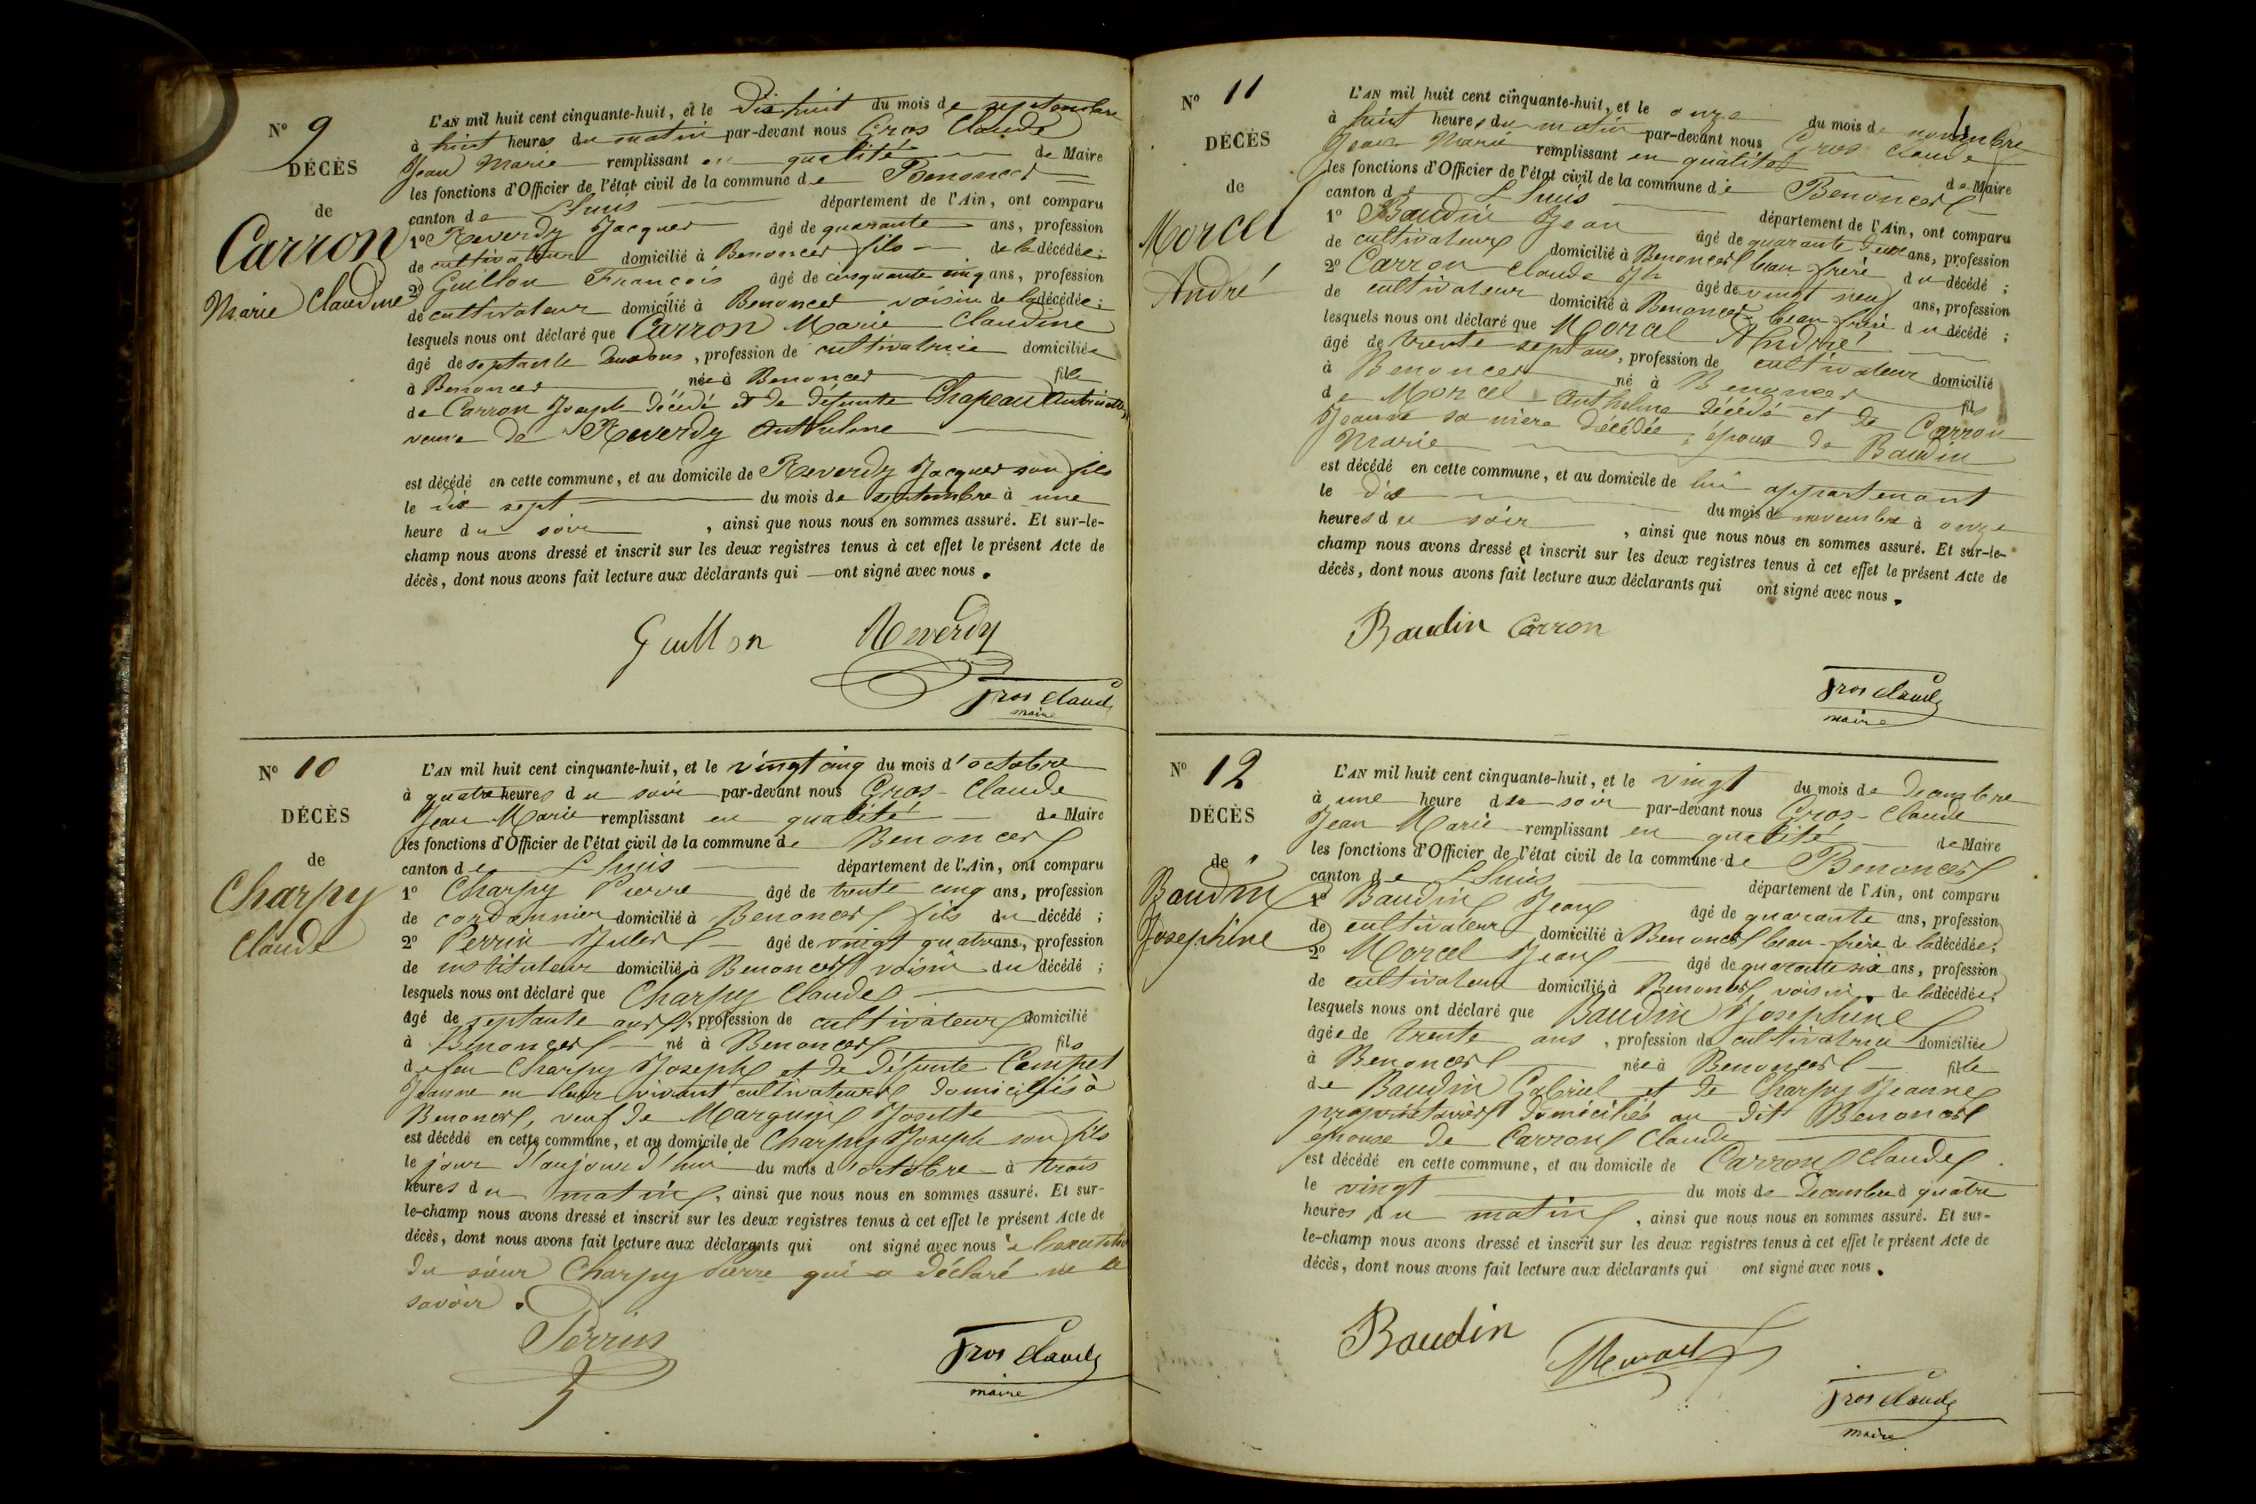 Nº 9
DÉCÈS
de
Carron
Marie Claudine
L'AN mil huit cent cinquante-huit, et le Dix huit du mois de septembre
à huit heures du matin par-devant nous Gros Claude
Jean Marie remplissant en qualité de Maire
les fonctions d'Officier de l'état civil de la commune de Benonces
canton de Lhuis département de l'Ain, ont comparu
1º Reverdy Jacques âgé de quarante ans, profession
de cultivateur domicilié à Benonces fils de la décédée;
2º Guillon François âgé de cinquante cinq ans, profession
de cultivateur domicilié à Benonces voisin de la décédée;
lesquels nous ont déclaré que Carron Marie Claudine
âgé de septante deux ans, profession de cultivatrice domiciliée
à Benonces née à Benonces fille
de Carron Joseph décédé et de défunte Chapeau Antoinette,
veuve de Reverdy Anthelme
est décédé en cette commune, et au domicile de Reverdy Jacques son fils
le dix sept du mois de septembre à une
heure du soir, ainsi que nous nous en sommes assuré. Et sur-le-
champ nous avons dressé et inscrit sur les deux registres tenus à cet effet le présent Acte de
décès, dont nous avons fait lecture aux déclarants qui ont signé avec nous.
Guillon Reverdy
Gros Claude
maire
Nº 10
DÉCÈS
de
Charpy
Claude
L'AN mil huit cent cinquante-huit, et le vingt cinq du mois d'octobre
à quatre heures du soir par-devant nous Gros-Claude
Jean Marie remplissant en qualité de Maire
les fonctions d'Officier de l'état civil de la commune de Benonces
canton de Lhuis département de l'Ain, ont comparu
1º Charpy Pierre âgé de trente cinq ans, profession
de cordonnier domicilié à Benonces fils du décédé;
2º Perrin Jules âgé de vingt quatre ans, profession
de instituteur domicilié à Benonces voisin du décédé;
lesquels nous ont déclaré que Charpy Claude
âgé de septante ans, profession de cultivateur domicilié
à Benonces né à Benonces fils
de feu Charpy Joseph et de défunte Compet
Jeanne en leur vivant cultivateurs domiciliés à
Benonces, veuf de Marguin Josette
est décédé en cette commune, et au domicile de Charpy Joseph son fils
le jour d'aujourd'hui du mois d'octobre à trois
heures du matin, ainsi que nous nous en sommes assuré. Et sur-
le-champ nous avons dressé et inscrit sur les deux registres tenus à cet effet le présent Acte de
décès, dont nous avons fait lecture aux déclarants qui ont signé avec nous à l'exception
du sieur Charpy Pierre qui a déclaré ne le
savoir.
Perrin
Gros Claude
maire
Nº 11
DÉCÈS
de
Morcel
André
L'AN mil huit cent cinquante-huit, et le onze du mois de novembre
à huit heures du matin par-devant nous Gros Claude
Jean Marie remplissant en qualité de Maire
les fonctions d'Officier de l'état civil de la commune de Benonces
canton de Lhuis département de l'Ain, ont comparu
1º Baudin Jean âgé de quarante deux ans, profession
de cultivateur domicilié à Benonces beau frère du décédé;
2º Carron Claude Jh âgé de vingt neuf ans, profession
de cultivateur domicilié à Benonces beau frère du décédé;
lesquels nous ont déclaré que Morcel André
âgé de trente sept ans, profession de cultivateur domicilié
à Benonces né à Benonces fils
de Morcel Anthelme décédé et de Carron
Jeanne sa mère décédée; époux de Baudin
Marie
est décédé en cette commune, et au domicile de lui appartenant
le dix du mois de novembre à onze
heures du soir, ainsi que nous nous en sommes assuré. Et sur-le-
champ nous avons dressé et inscrit sur les deux registres tenus à cet effet le présent Acte de
décès, dont nous avons fait lecture aux déclarants qui ont signé avec nous.
Baudin Carron
Gros Claude
maire
Nº 12
DÉCÈS
de
Baudin
Josephine
L'AN mil huit cent cinquante-huit, et le vingt du mois de Decembre
à une heure du soir par-devant nous Gros-Claude
Jean Marie remplissant en qualité de Maire
les fonctions d'Officier de l'état civil de la commune de Benonces
canton de Lhuis département de l'Ain, ont comparu
1º Baudin Jean âgé de quarante ans, profession
de cultivateur domicilié à Benonces beau-frère de la décédée;
2º Morcel Jean âgé de quarante six ans, profession
de cultivateur domicilié à Benonces voisin de la décédée;
lesquels nous ont déclaré que Baudin Josephine
âgée de trente ans, profession de cultivatrice domiciliée
à Benonces née à Benonces fille
de Baudin Gabriel et de Charpy Jeanne
propriétaires domiciliés au dit Benonces
épouse de Carron Claude
est décédé en cette commune, et au domicile de Carron Claude
le vingt du mois de Decembre à quatre
heures du matin, ainsi que nous nous en sommes assuré. Et sur-
le-champ nous avons dressé et inscrit sur les deux registres tenus à cet effet le présent Acte de
décès, dont nous avons fait lecture aux déclarants qui ont signé avec nous.
Baudin
Gros Claude
maire